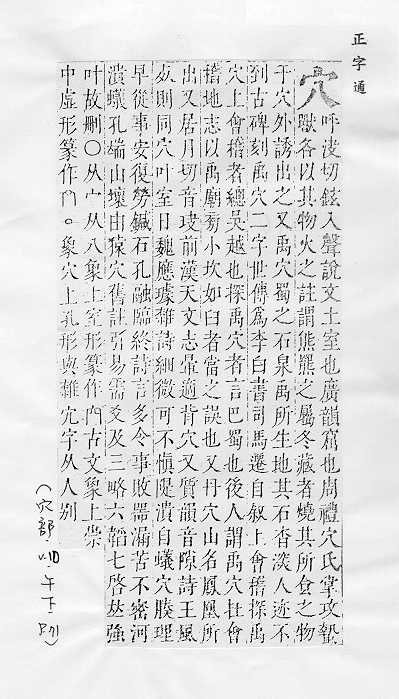 正字通
穴
呼決切鉉入聲說文土室也廣韻窟也周禮穴氏掌攻蟄
獸各以其物火之註謂熊羆之屬冬藏者燒其所食之物
于穴外誘出之又禹穴蜀之石泉禹所生地其石杳深人迹不
到古碑刻禹穴二字世傳爲李白書司馬遷自敘上會稽探禹
穴上會稽者總吳越也探禹穴者言巴蜀也後人謂禹穴在會
稽地志以禹廟旁小坎如臼者當之誤也又丹穴山名鳳凰所
出又居月切音玦前漢天文志暈適背穴又質韻音隙詩王風
死則同穴叶室日魏應璩雜詩細微可不愼隄潰自蟻穴腠理
早從事安復勞鍼石孔融臨終詩言多令事敗器漏苦不密河
潰蟻孔端山壞由猿穴舊註引易需爻及三略六韜七啓
叶故刪〇从宀从八象上室形篆作古文象上崇
中虛形篆作象穴上孔形與雜宂字从人別
（穴部